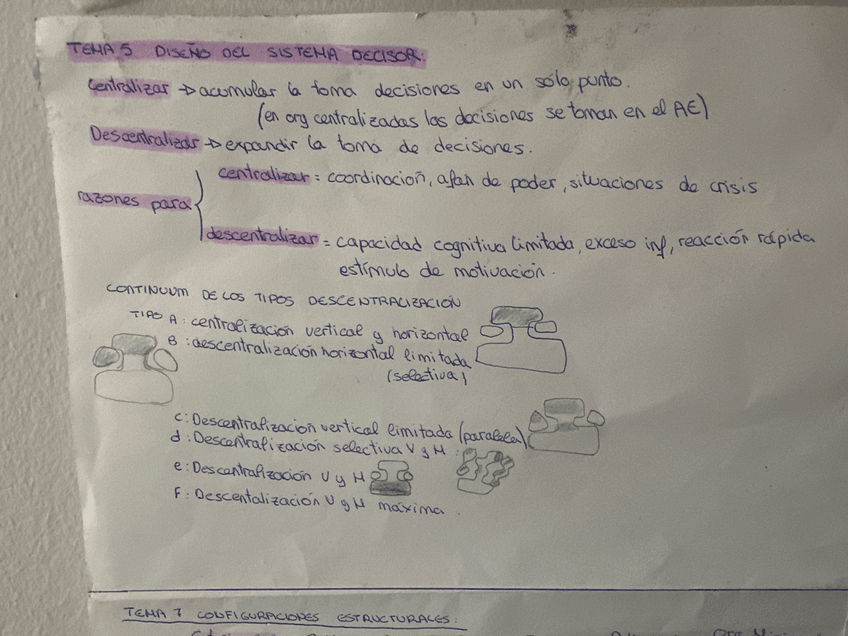 TEMA 5 DISEÑO DEL SISTEMA DECISOR.
Centralizar → acumular la toma decisiones en un sólo punto.
(en org centralizadas las decisiones se toman en el AE)
Descentralizar → expandir la toma de decisiones.
centralizar = coordinación, afán de poder, situaciones de crisis
razones para
descentralizar = capacidad cognitiva limitada, exceso inf, reacción rápida
estímulo de motivación.
CONTINUUM DE LOS TIPOS DESCENTRALIZACIÓN
TIPO A: centralización vertical y horizontal
B: descentralización horizontal limitada
(selectiva)
c: Descentralización vertical limitada (paralela)
d: Descentralización selectiva V y H:
e: Descentralización V y H
F: Descentalización V y H máxima.
TEMA 7 CONFIGURACIONES ESTRUCTURALES.